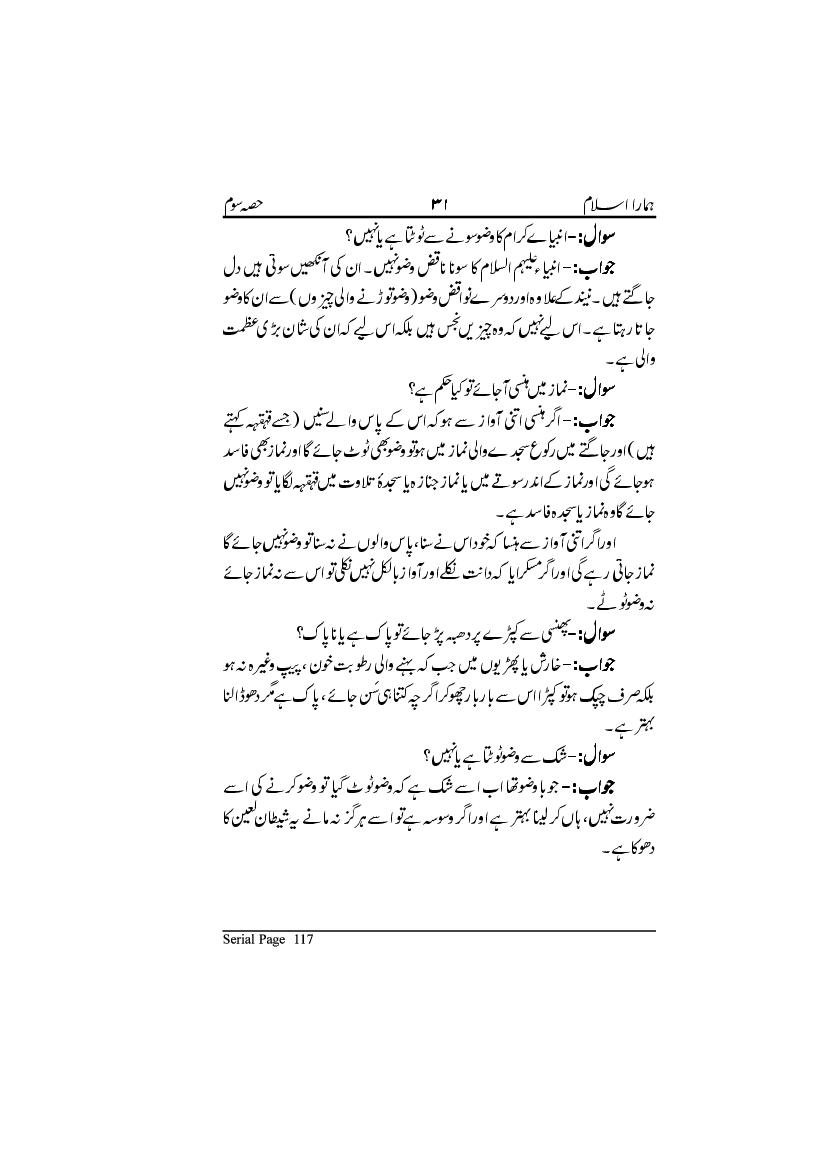 ہمارا اسلام ۳۱ حصہ سوم
سوال: – انبیاے کرام کا وضو سونے سے ٹوٹتا ہے یا نہیں؟
جواب: – انبیاء علیہم السلام کا سونا ناقض وضو نہیں۔ ان کی آنکھیں سوتی ہیں دل
جاگتے ہیں۔ نیند کے علاوہ اور دوسرے نواقض وضو (وضو توڑنے والی چیزوں) سے ان کا وضو
جاتا رہتا ہے۔ اس لیے نہیں کہ وہ چیزیں نجس ہیں بلکہ اس لیے کہ ان کی شان بڑی عظمت
والی ہے۔
سوال: – نماز میں ہنسی آجائے تو کیا حکم ہے؟
جواب: – اگر ہنسی اتنی آواز سے ہو کہ اس کے پاس والے سنیں (جسے قہقہہ کہتے
ہیں) اور جاگتے میں رکوع سجدے والی نماز میں ہو تو وضو بھی ٹوٹ جائے گا اور نماز بھی فاسد
ہو جائے گی اور نماز کے اندر سوتے میں یا نماز جنازہ یا سجدۂ تلاوت میں قہقہہ لگایا تو وضو نہیں
جائے گا وہ نماز یا سجدہ فاسد ہے۔
اور اگر اتنی آواز سے ہنسا کہ خود اس نے سنا، پاس والوں نے نہ سنا تو وضو نہیں جائے گا
نماز جاتی رہے گی اور اگر مسکرایا کہ دانت نکلے اور آواز بالکل نہیں نکلی تو اس سے نہ نماز جائے
نہ وضو ٹوٹے۔
سوال: – پھنسی سے کپڑے پر دھبہ پڑ جائے تو پاک ہے یا ناپاک؟
جواب: – خارش یا پھڑیوں میں جب کہ بہنے والی رطوبت خون، پیپ وغیرہ نہ ہو
بلکہ صرف چپک ہو تو کپڑا اس سے بار بار چھو کر اگرچہ کتنا ہی سَن جائے، پاک ہے مگر دھو ڈالنا
بہتر ہے۔
سوال: – شک سے وضو ٹوٹتا ہے یا نہیں؟
جواب: – جو با وضو تھا اب اسے شک ہے کہ وضو ٹوٹ گیا تو وضو کرنے کی اسے
ضرورت نہیں، ہاں کر لینا بہتر ہے اور اگر وسوسہ ہے تو اسے ہرگز نہ مانے یہ شیطان لعین کا
دھوکا ہے۔
Serial Page 117